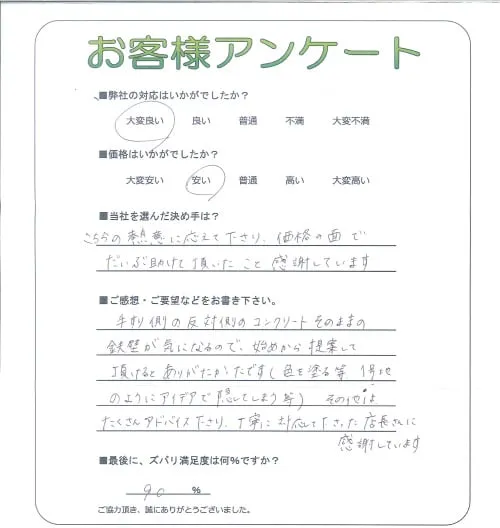 お客様アンケート
■弊社の対応はいかがでしたか？
大変良い 良い 普通 不満 大変不満
■価格はいかがでしたか？
大変安い 安い 普通 高い 大変高い
■当社を選んだ決め手は？
こちらの熱意に応えて下さり、価格の面で
だいぶ助けて頂いたこと感謝しています
■ご感想・ご要望などをお書き下さい。
手すり側の反対側のコンクリートそのままの
鉄壁が気になるので、始めから提案して
頂けるとありがたかったです(色を塗る等
のようにアイデアで隠してしまう等) その他は
たくさんアドバイス下さり、丁寧に対応して下さった店長さんに
感謝しています
■最後に、ズバリ満足度は何%ですか？
90 %
ご協力頂き、誠にありがとうございました。